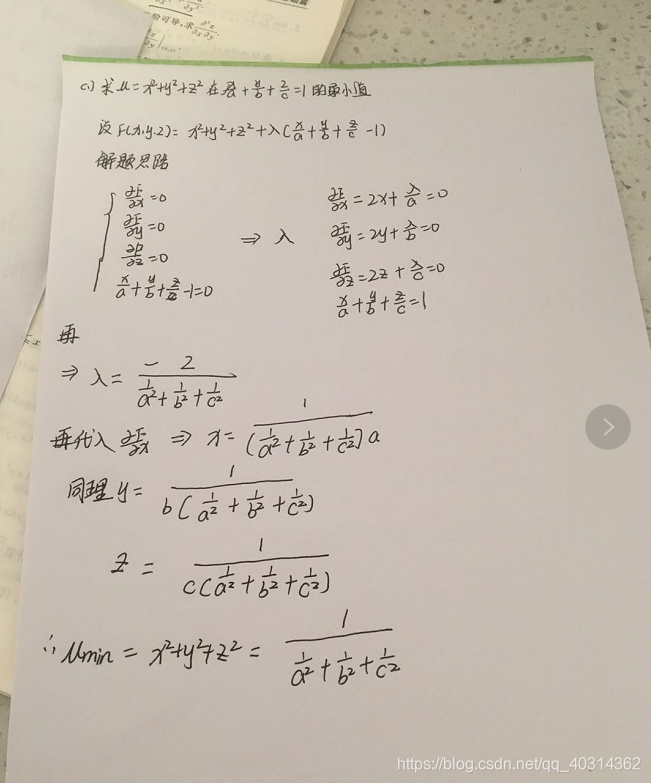 阶可导,求 ∂²z/∂x∂y
(1) 求 u=x²+y²+z² 在 x/a + y/b + z/c =1 的最小值
设 F(x,y,z)= x²+y²+z²+λ(x/a + y/b + z/c -1)
解题思路
∂F/∂x =0
∂F/∂y =0
∂F/∂z =0
x/a + y/b + z/c -1=0
⇒ λ
∂F/∂x = 2x+ λ/a =0
∂F/∂y = 2y+ λ/b =0
∂F/∂z = 2z + λ/c =0
x/a + y/b + z/c =1
再
⇒ λ= - 2/(1/a² + 1/b² + 1/c²)
再代入 ∂F/∂x ⇒ x= 1/((1/a² + 1/b² + 1/c²)a)
同理 y= 1/(b(1/a² + 1/b² + 1/c²))
z = 1/(c(1/a² + 1/b² + 1/c²))
∴ umin = x²+y²+z² = 1/(1/a² + 1/b² + 1/c²)
https://blog.csdn.net/qq_40314362